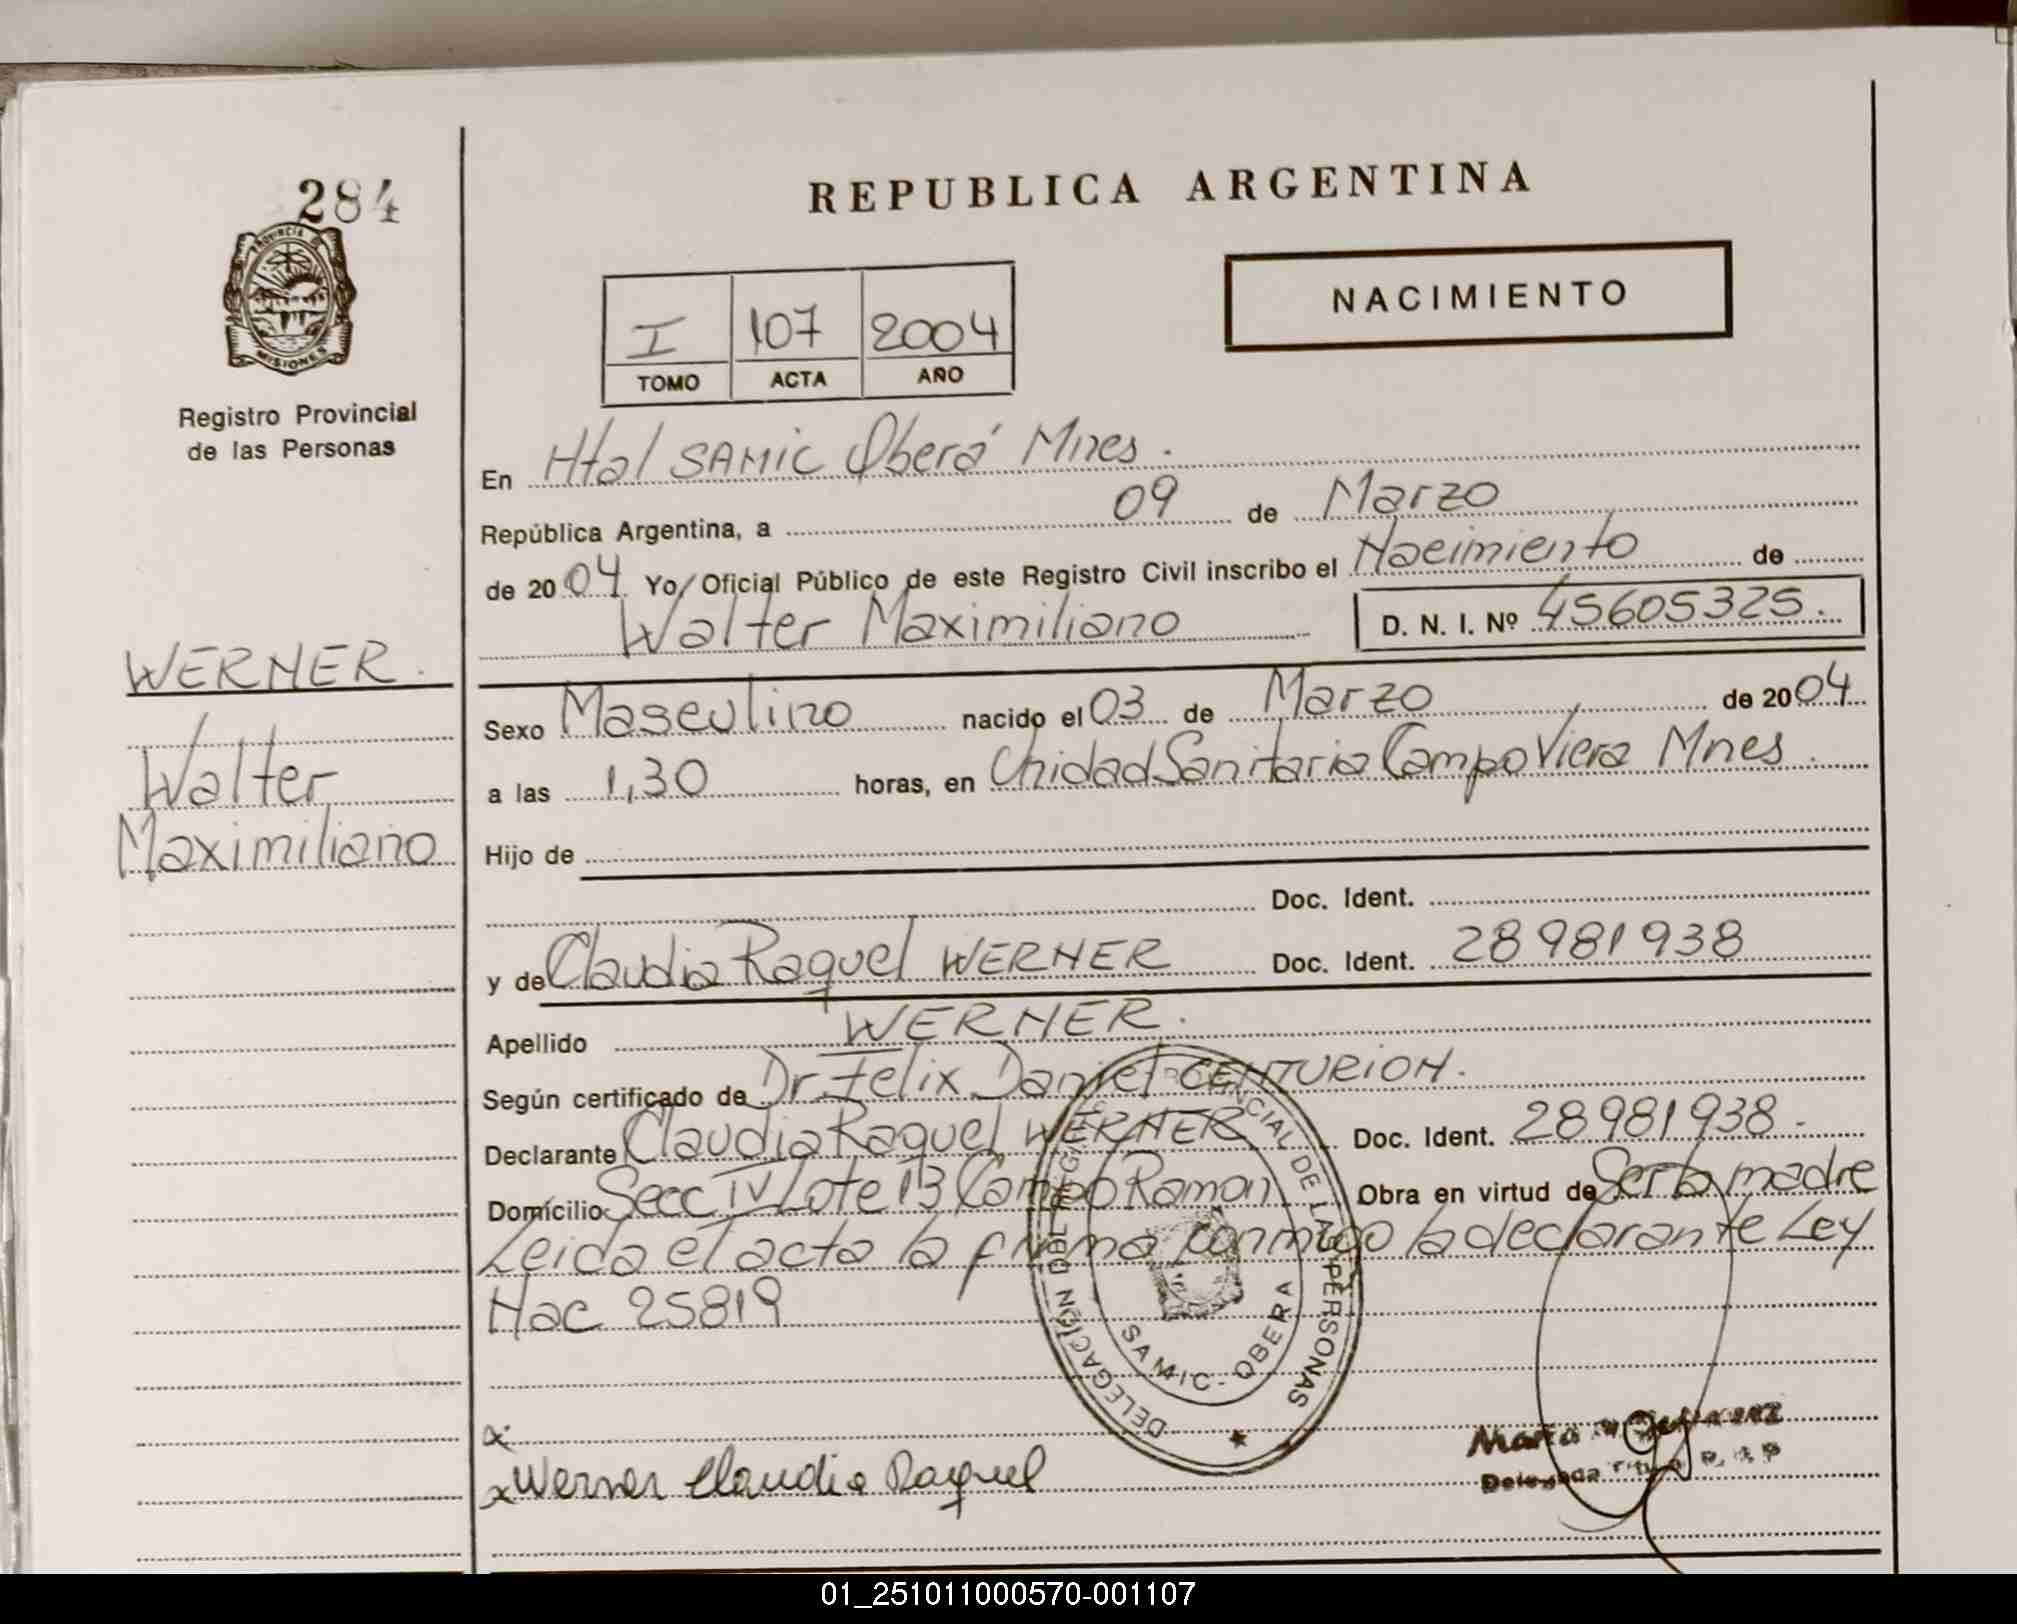 284
PROVINCIA
MISIONES
Registro Provincial
de las Personas
WERNER.
Walter
Maximiliano
REPUBLICA ARGENTINA
NACIMIENTO
I 107 2004
TOMO ACTA AÑO
En Htal SAMIC Oberá Mnes.
República Argentina, a 09 de Marzo
de 2004 Yo, Oficial Público de este Registro Civil inscribo el Nacimiento de
Walter Maximiliano D. N. I. Nº 45605325.
Sexo Masculino nacido el 03 de Marzo de 2004
a las 1,30 horas, en Unidad Sanitaria Campo Viera Mnes.
Hijo de
Doc. Ident.
y de Claudia Raquel WERNER Doc. Ident. 28981938
Apellido WERNER.
Según certificado de Dr Felix Daniel CENTURION.
Declarante Claudia Raquel WERNER Doc. Ident. 28981938.
Domicilio Secc IV Lote 13 Campo Ramon Obra en virtud de Ser la madre
Leida el acta la firma conmigo la declarante Ley
Nac 25819
DELEGACION DEL PERSONAS
SAMIC - OBERA
x
x Werner Claudia Raquel
Maria
Delegada
01_251011000570-001107